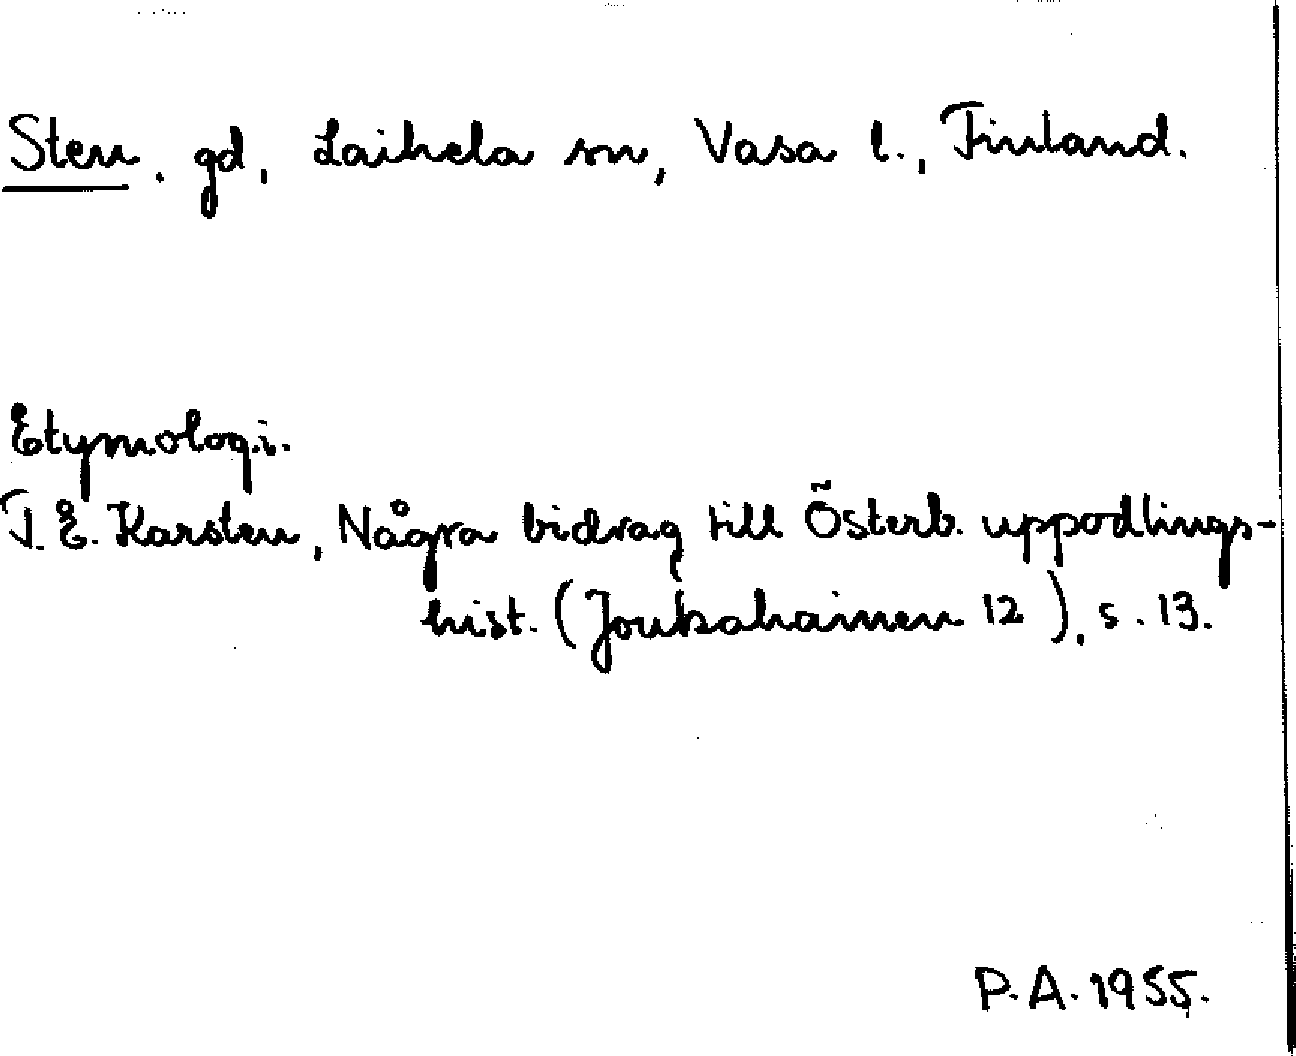 Sten, gd, Laihela sn, Vasa l., Finland.
Etymologi.
T. E. Karsten, Några bidrag till Österb. uppodlings-
hist. (Joukahainen 12), s. 13.
P.A. 1955.